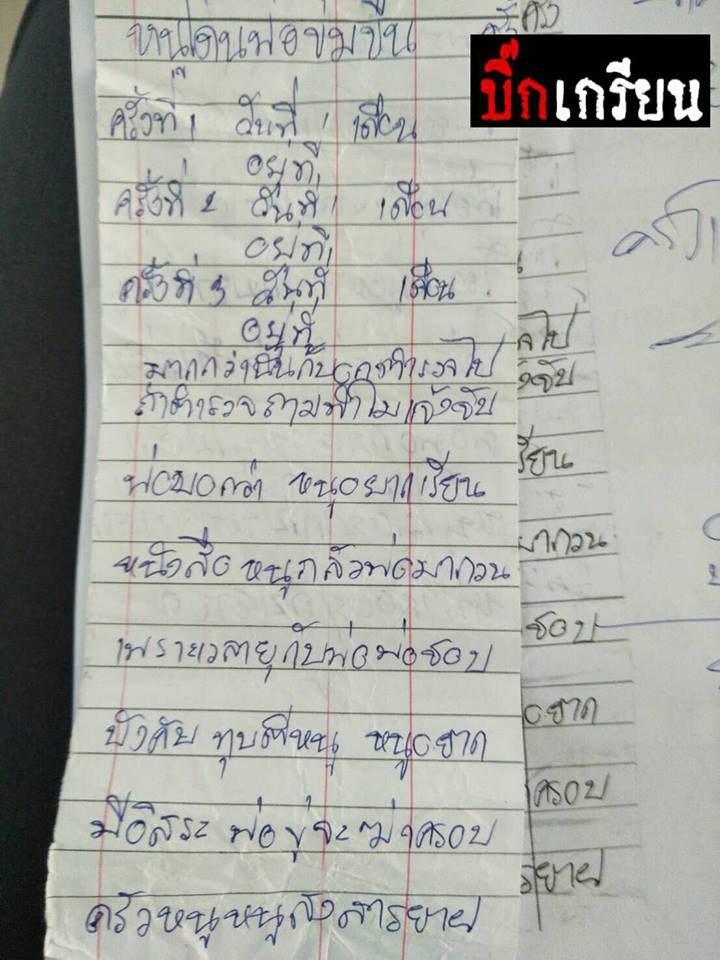 หนูโดนพ่อข่มขืน
บิ๊กเกรียน
ครั้งที่ 1 วันที่ 1 เดือน
อยู่ที่
ครั้งที่ 2 วันที่ 1 เดือน
อยู่ที่
ครั้งที่ 3 วันที่ เดือน
อยู่ที่
ถ้าตำรวจถามทำไมแจ้งจับ
พ่อบอกว่า หนูอยากเรียน
หนังสือ หนูกลัวพ่อมากวน
เพราะเวลาอยู่กับพ่อพ่อชอบ
บังคับ ทุบตีหนู หนูอยาก
มีอิสระ พ่อขู่จะฆ่าครอบ
ครัวหนูหนูสงสารยาย
ลไป
งจับ
รียน
มากวน
ชอบ
อยาก
ครอบ
รยาย